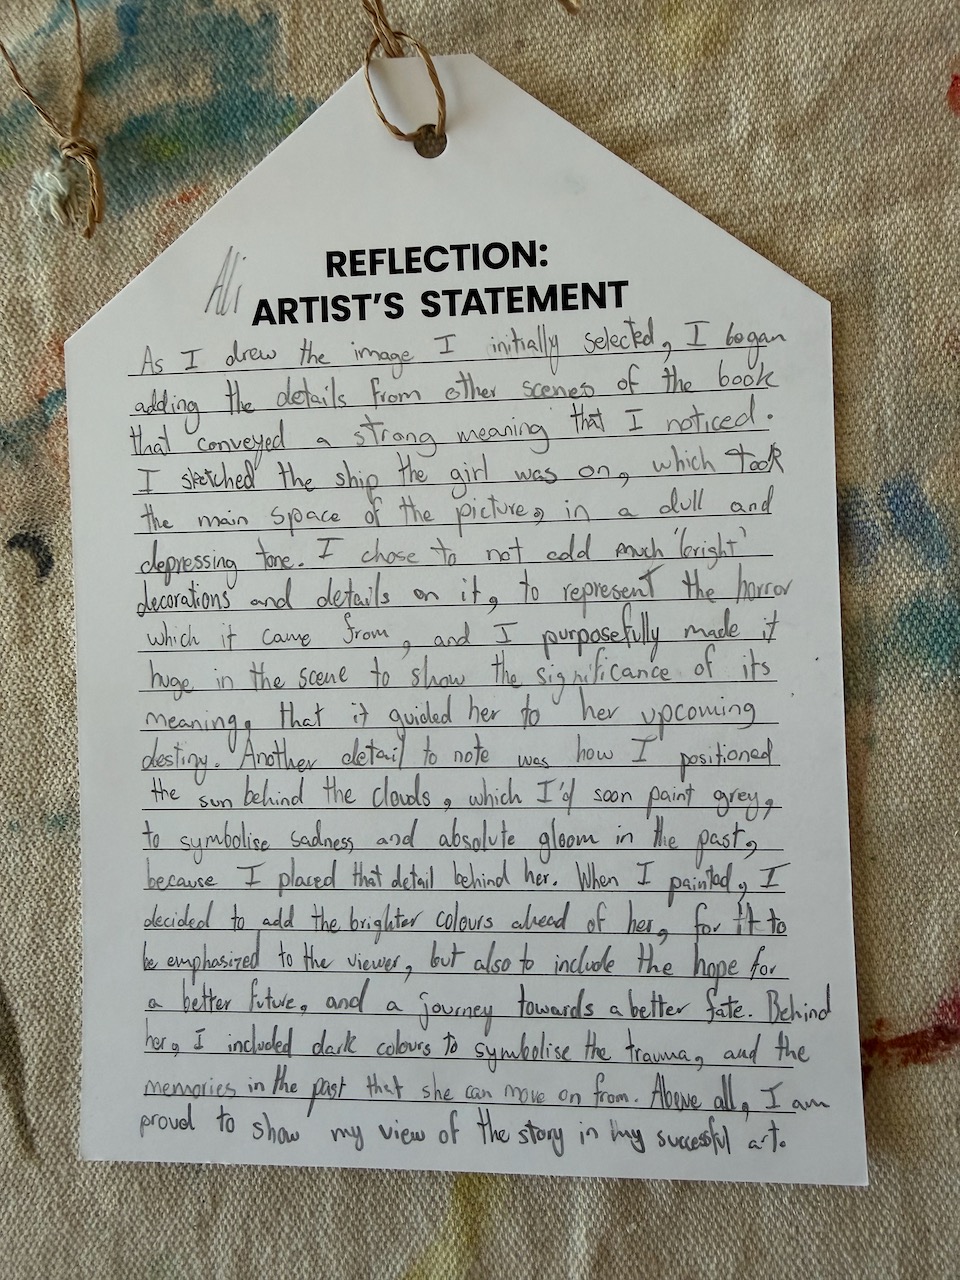 Ali
REFLECTION:
ARTIST'S STATEMENT
As I drew the image I initially selected, I began
adding the details from other scenes of the book
that conveyed a strong meaning that I noticed.
I sketched the ship the girl was on, which took
the main space of the picture, in a dull and
depressing tone. I chose to not add much 'bright'
decorations and details on it, to represent the horror
which it came from, and I purposefully made it
huge in the scene to show the significance of its
meaning, that it guided her to her upcoming
destiny. Another detail to note was how I positioned
the sun behind the clouds, which I'd soon paint grey,
to symbolise sadness and absolute gloom in the past,
because I placed that detail behind her. When I painted, I
decided to add the brighter colours ahead of her, for it to
be emphasized to the viewer, but also to include the hope for
a better future, and a journey towards a better fate. Behind
her, I included dark colours to symbolise the trauma, and the
memories in the past that she can move on from. Above all, I am
proud to show my view of the story in my successful art.